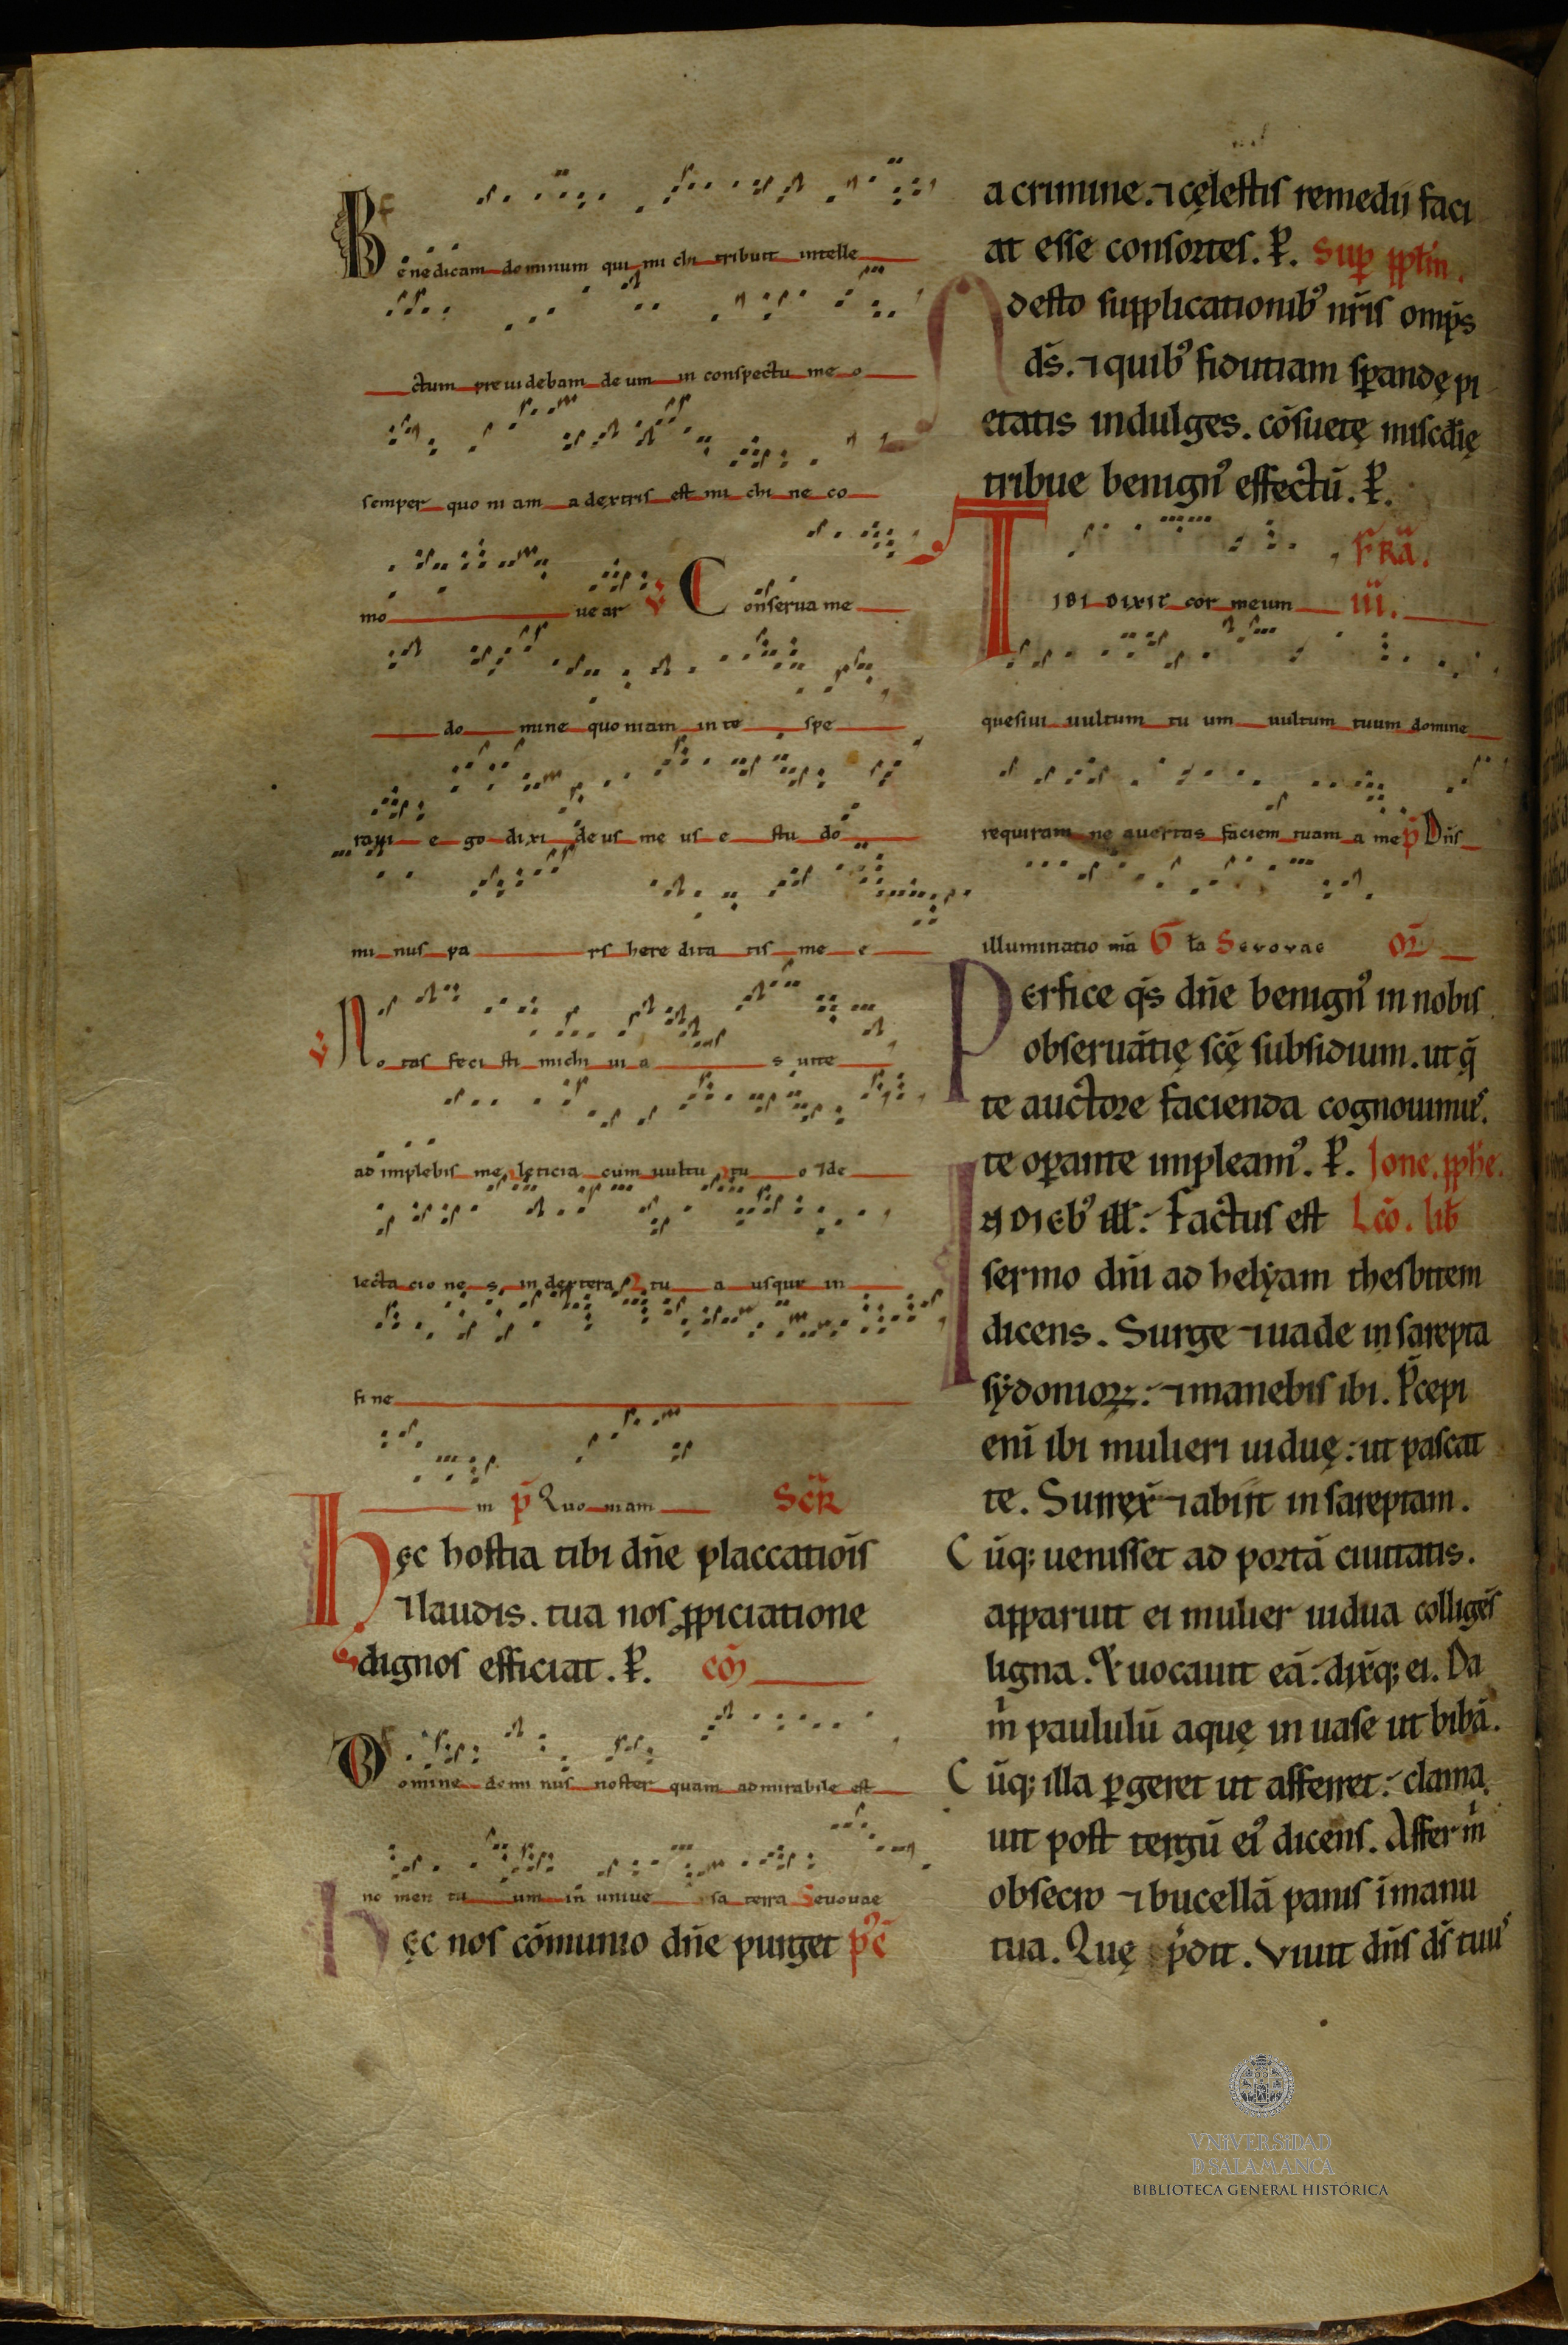 Benedicam dominum qui michi tribuit intelle
ctum preuidebam deum in conspectu meo
semper quoniam a dextris est michi ne co
mo uear ℣ Conserua me
do mine quoniam in te spe
raui ego dixi deus meus es tu do
minus pars hereditatis mee
℣ Notas fecisti michi uias uite
ad implebis me lęticia cum uultu tuo ⁊ de
lectaciones in dextera tua usque in
fine
m p̄ Quoniam Scr̄
hęc hostia tibi dn̄e placcatiōis
⁊ laudis. tua nos ꝓpiciatione
dignos efficiat. P̄. cō
Domine dominus noster quam admirabile est
nomen tuum in uniuersa terra Seuouae
Hęc nos cōmunio dn̄e purget p̓c̄
a crimine. ⁊ cęlestis remedii faci
at esse consortes. P̄. Sup̄ pptm̄.
Adesto supplicationib᾽ nr̄is omp̄s
ds̄. ⁊ quib᾽ fidutiam sꝑandę pi
etatis indulges. cōsuetę miscdīę
tribue benign᾽ effectū. P̄.
TIBI DIXIT cor meum FR̄A. iii.
quesiui uultum tuum uultum tuum domine
requiram ne auertas faciem tuam a me p̄ Dn̄s
illuminatio mā G̅ ła Seuouae Or̄
Perfice qs̄ dn̄e benign᾽ in nobis
obseruātię scę̄ subsidium. ut q̄
te auctore facienda cognouimus᾽.
te oꝑante impleam᾽. P̄. Ione. ꝓphe.
IN DIEB᾽ ill̄. Factus est Lcō. lib̄
sermo dn̄i ad helẏam thesbitem
dicens. Surge ⁊ uade in sarepta
sẏdonioꝝ. ⁊ manebis ibi. P̄cepi
enī ibi mulieri uiduę. ut pascat
te. Surrex̄ ⁊ abiit in sareptam.
Cūq; uenisset ad portā ciuitatis.
apparuit ei mulier uidua colligēs
ligna. & uocauit eā. dix̄q; ei. Da
m̓ paululū aquę in uase ut bibā.
Cūq; illa ꝑgeret ut afferret. clama
uit post tergū ei᾽ dicens. Affer m̓
obsecro ⁊ bucellā panis ī manu
tua. Quę r̄n̄dit. Viuit dn̄s ds̄ tuu᾽
VNiVERSiDAD
D SALAMANCA
BIBLIOTECA GENERAL HISTÓRICA